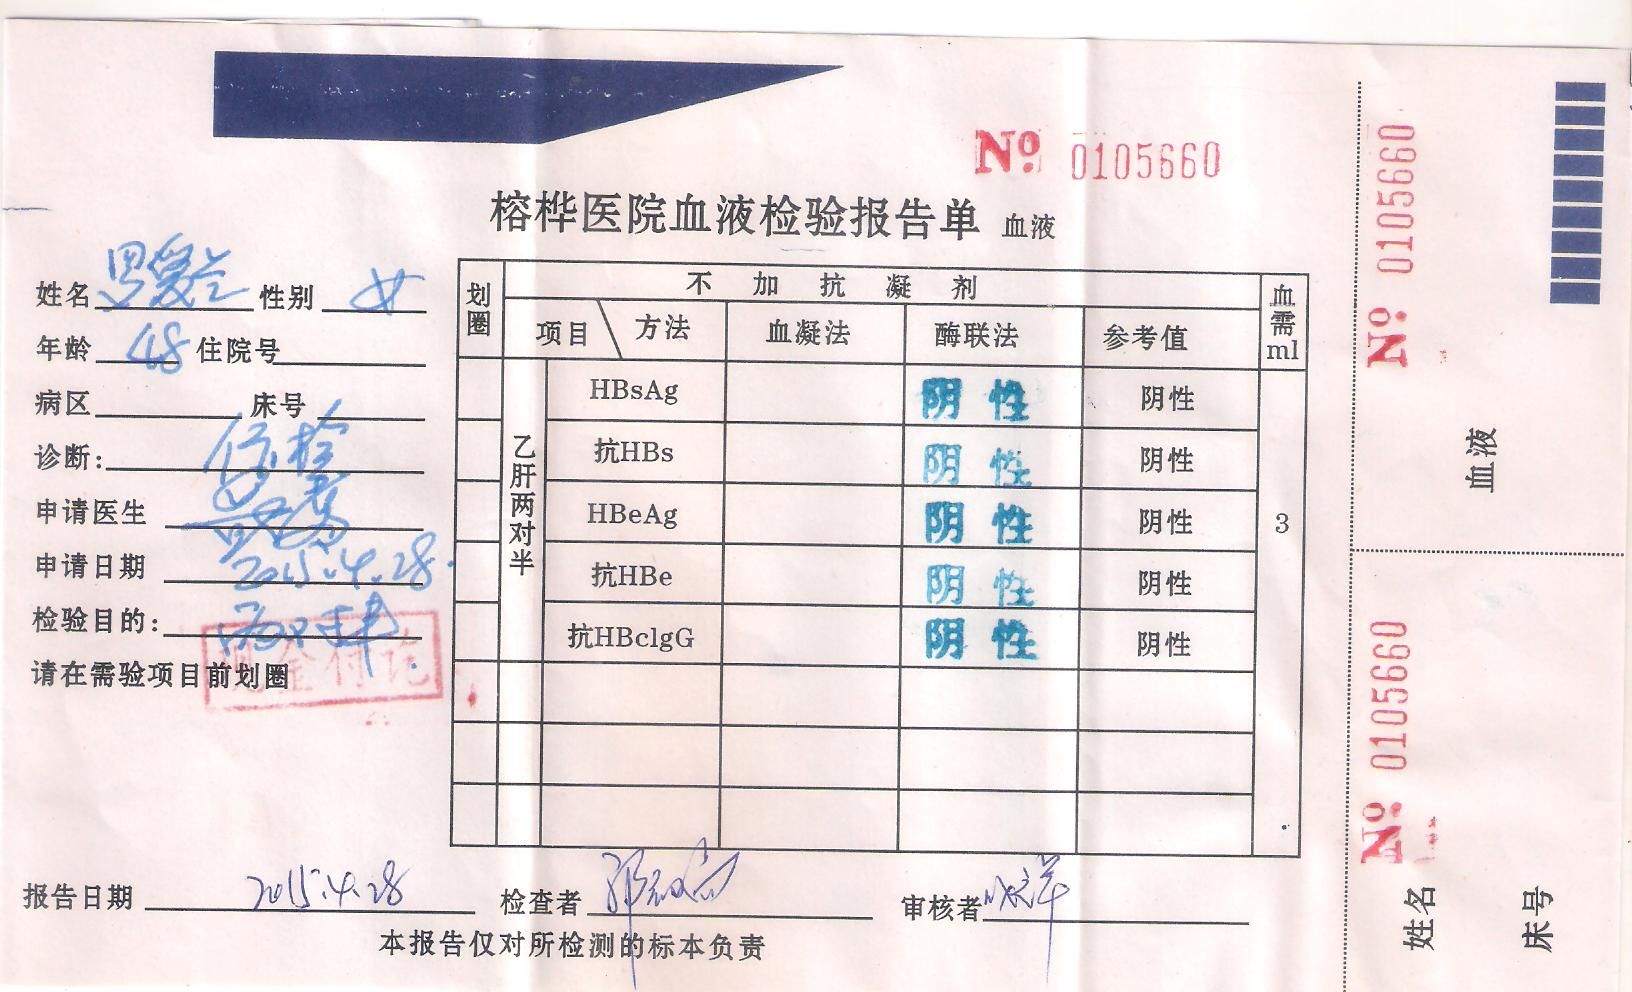 No. 0105660
榕桦医院血液检验报告单 血液
姓名 性别 女
年龄 48 住院号
病区 床号
诊断:
申请医生
申请日期 2015.4.28.
检验目的: 两对半
请在需验项目前划圈
现金付讫
划圈 不加抗凝剂 血需ml
项目 方法 血凝法 酶联法 参考值
乙肝两对半 3
HBsAg 阴性 阴性
抗HBs 阴性 阴性
HBeAg 阴性 阴性
抗HBe 阴性 阴性
抗HBclgG 阴性 阴性
报告日期 2015.4.28 检查者 审核者
本报告仅对所检测的标本负责
No. 0105660
血液
No. 0105660
姓名
床号